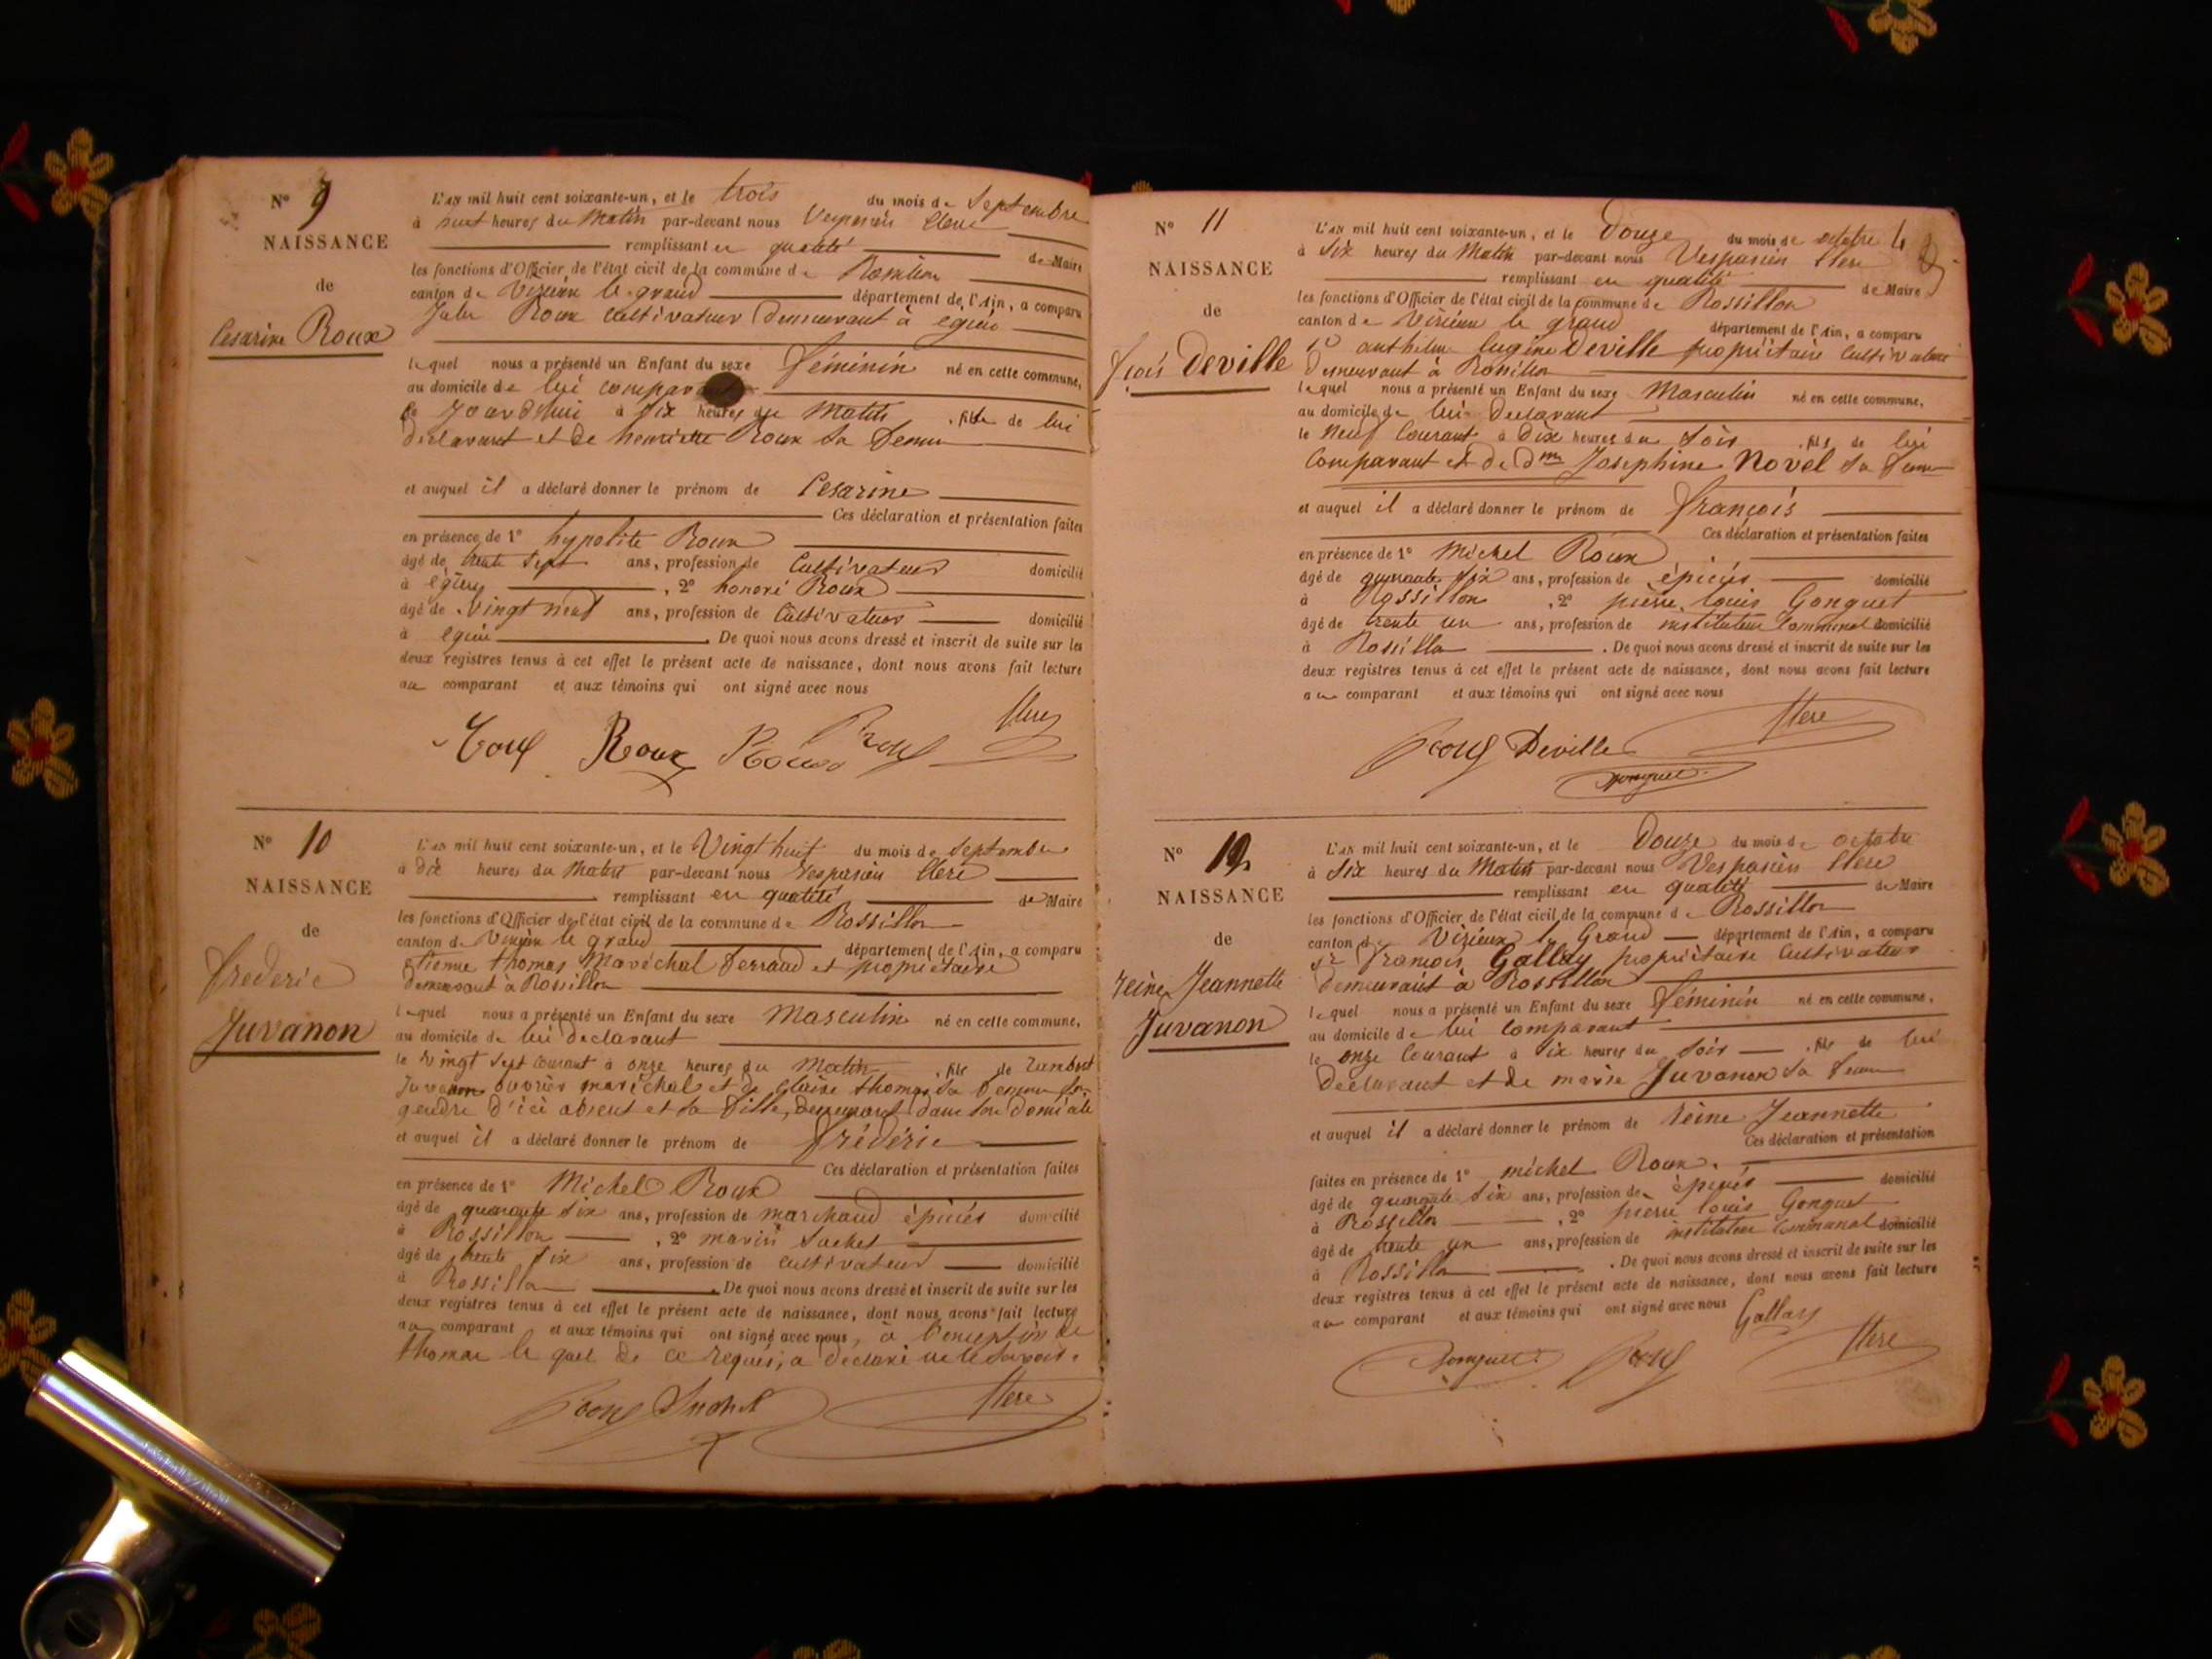 N° 9
NAISSANCE
de
Cesarine Roux
L'AN mil huit cent soixante-un, et le trois du mois de Septembre
à neuf heures du Matin par-devant nous Vespasien
remplissant en qualité de Maire
les fonctions d'Officier de l'état civil de la commune de Rossillon
canton de Virieux le grand département de l'Ain, a comparu
Jules Roux cultivateur demeurant à égieu
lequel nous a présenté un Enfant du sexe féminin né en cette commune,
au domicile de lui
ce Jourd'hui à Six heures du Matin fille de lui
declarant et de henriette Roux Sa femme
et auquel il a déclaré donner le prénom de Cesarine
Ces déclaration et présentation faites
en présence de 1° hypolite Roux
âgé de trente Sept ans, profession de Cultivateur domicilié
à égieu , 2° honoré Roux
âgé de vingt neuf ans, profession de Cultivateur domicilié
à égieu . De quoi nous avons dressé et inscrit de suite sur les
deux registres tenus à cet effet le présent acte de naissance, dont nous avons fait lecture
au comparant et aux témoins qui ont signé avec nous
Roux Roux Roux
N° 10
NAISSANCE
de
frederic
Juvanon
L'AN mil huit cent soixante-un, et le Vingt huit du mois de Septembre
à dix heures du Matin par-devant nous Vespasien
remplissant en qualité de Maire
les fonctions d'Officier de l'état civil de la commune de Rossillon
canton de Virieux le grand département de l'Ain, a comparu
étienne thomas Maréchal ferrand et propriétaire
demeurant à Rossillon
lequel nous a présenté un Enfant du sexe Masculin né en cette commune,
au domicile de lui declarant
le vingt Sept courant à onze heures du Matin fils de
Juvanon ouvrier maréchal et de Claire thomas Sa femme Son
gendre d'ici absent et sa fille, demeurant dans son domicile
et auquel il a déclaré donner le prénom de frédéric
Ces déclaration et présentation faites
en présence de 1° Michel Roux
âgé de quarante Six ans, profession de marchand épicier domicilié
à Rossillon , 2°
âgé de trente Six ans, profession de cultivateur domicilié
à Rossillon . De quoi nous avons dressé et inscrit de suite sur les
deux registres tenus à cet effet le présent acte de naissance, dont nous avons fait lecture
au comparant et aux témoins qui ont signé avec nous, à l'exception de
thomas le quel de ce requis, a déclaré ne le savoir.
Roux
N° 11
NAISSANCE
de
Deville
L'AN mil huit cent soixante-un, et le Douze du mois de octobre
à Six heures du Matin par-devant nous Vespasien
remplissant en qualité de Maire
les fonctions d'Officier de l'état civil de la commune de Rossillon
canton de Virieux le grand département de l'Ain, a comparu
anthelme Eugène Deville propriétaire Cultivateur
demeurant à Rossillon
lequel nous a présenté un Enfant du sexe Masculin né en cette commune,
au domicile de lui declarant
le Neuf Courant à Dix heures du Soir fils de lui
Comparant et de dme Josephine Novel Sa femme
et auquel il a déclaré donner le prénom de françois
Ces déclaration et présentation faites
en présence de 1° Michel Roux
âgé de quarante Six ans, profession de épicier domicilié
à Rossillon , 2° pierre louis Gonguet
âgé de trente un ans, profession de instituteur Communal domicilié
à Rossillon . De quoi nous avons dressé et inscrit de suite sur les
deux registres tenus à cet effet le présent acte de naissance, dont nous avons fait lecture
au comparant et aux témoins qui ont signé avec nous
Roux Deville
N° 12
NAISSANCE
de
reine Jeannette
Juvanon
L'AN mil huit cent soixante-un, et le Douze du mois de octobre
à Six heures du Matin par-devant nous Vespasien
remplissant en qualité de Maire
les fonctions d'Officier de l'état civil de la commune de Rossillon
canton de Virieux le Grand département de l'Ain, a comparu
sr françois Gallay propriétaire Cultivateur
demeurant à Rossillon
lequel nous a présenté un Enfant du sexe féminin né en cette commune,
au domicile de lui Comparant
le onze Courant à Six heures du Soir fils de lui
declarant et de marie Juvanon Sa femme
et auquel il a déclaré donner le prénom de reine Jeannette
Ces déclaration et présentation
faites en présence de 1° michel Roux
âgé de quarante Six ans, profession de épicier domicilié
à Rossillon , 2° pierre louis Gonguet
âgé de trente un ans, profession de instituteur communal domicilié
à Rossillon . De quoi nous avons dressé et inscrit de suite sur les
deux registres tenus à cet effet le présent acte de naissance, dont nous avons fait lecture
au comparant et aux témoins qui ont signé avec nous Gallay
Roux